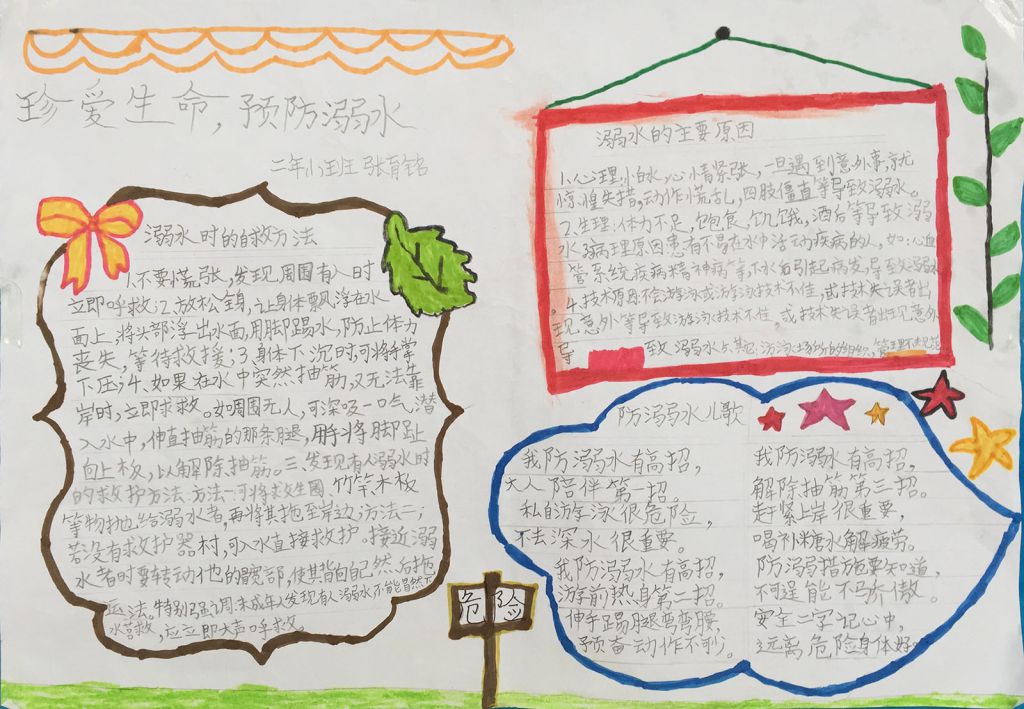 珍爱生命,预防溺水
二年小班 张育铭
溺水时的自救方法
1.不要慌张,发现周围有人时
立即呼救;2.放松全身,让身体飘浮在水
面上,将头部浮出水面,用脚踢水,防止体力
丧失,等待救援;3.身体下沉时,可将手掌
下压;4.如果在水中突然抽筋,又无法靠
岸时,立即求救。如周围无人,可深吸一口气潜
入水中,伸直抽筋的那条腿,用手将脚趾
向上板,以解除抽筋。三、发现有人溺水时
的救护方法.方法一:可将救生圈,竹竿、木板
等物抛给溺水者,再将其拖至岸边;方法二;
若没有救护器材,可入水直接救护。接近溺
水者时要转动他的髋部,使其背向自己然后拖
运法。特别强调:未成年人发现有人溺水不能冒然下
水营救,应立即大声呼救。
溺水的主要原因
1.心理:小怕水,心情紧张,一旦遇到意外事,就
惊惶失措,动作慌乱,四肢僵直等导致溺水。
2.生理:体力不足,饱食,饥饿,酒后等导致溺
水.病理原因患有不易在水中活动疾病的人,如:心血
管系统疾病精神病等,下水后引起病发,导致溺水
。4.技术原因不会游泳或游泳技术不佳,或技术失误者出
现意外等导致游泳技术不佳,或技术失误者出现意外
导 致溺水5.其它:游泳场所的自然,管理不规范
防溺水儿歌
我防溺水有高招,
大人陪伴第一招。
私自游泳很危险,
不去深水很重要。
我防溺水有高招,
游前热身第二招。
伸手踢腿要弯腰,
预备动作不可少。
我防溺水有高招,
解除抽筋第三招。
赶紧上岸很重要,
喝补糖水解疲劳。
防溺弱措施要知道,
不可逞能不骄傲。
安全二字记心中,
远离危险身体好。
危险